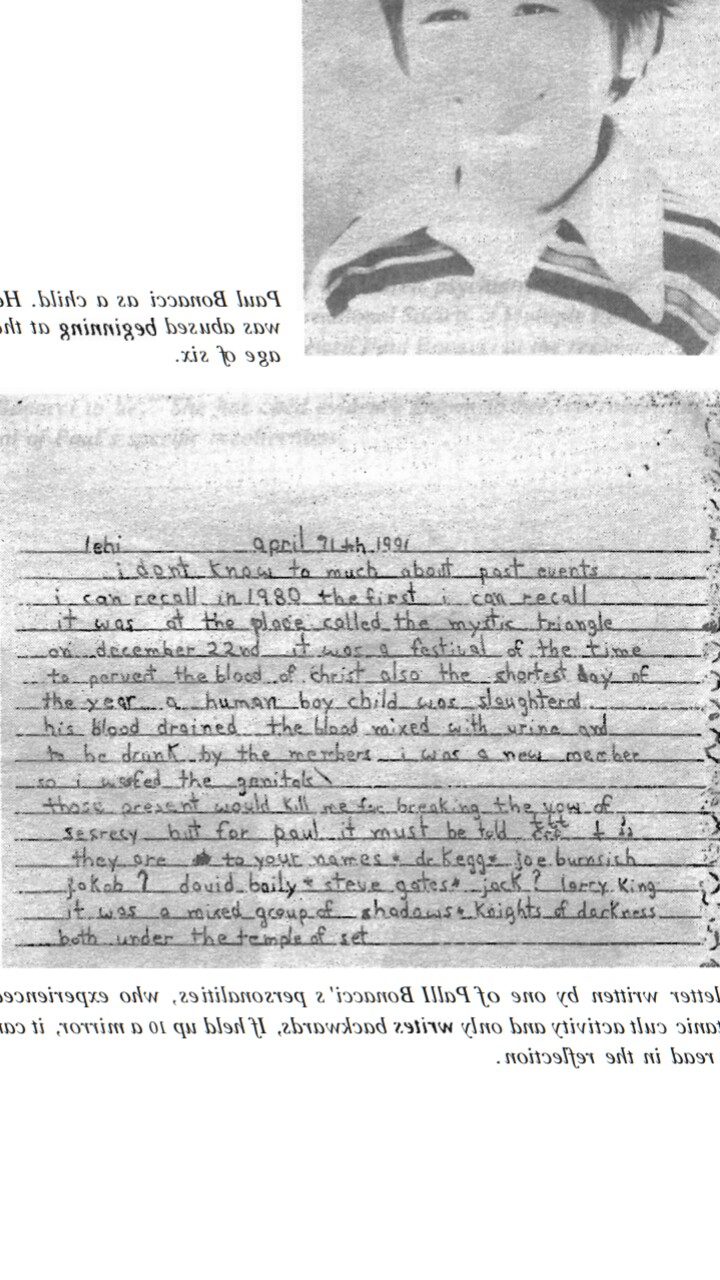 Paul Bonacci as a child. He
was abused beginning at the
age of six.
lehi april 91th 1991
i dont know to much about past events
i can recall in 1980 the first i can recall
it was at the place called the mystic triangle
on december 22nd it was a festival of the time
to pervert the blood of christ also the shortest day of
the year a human boy child was slaughterd
his blood drained the blood mixed with urine and
to be drunk by the members i was a new member
so i the genitals
those present would kill me for breaking the vow of
secrecy but for paul it must be told
they are to your names dr Kegg joe burnsich
jakob ? david baily steve gates jack ? larry King
it was a mixed group of shadows & Knights of darkness
both under the temple of set
letter written by one of PaulI Bonacci's personalities, who experienced
tanic cult activity and only writes backwards. If held up to a mirror, it can
read in the reflection.